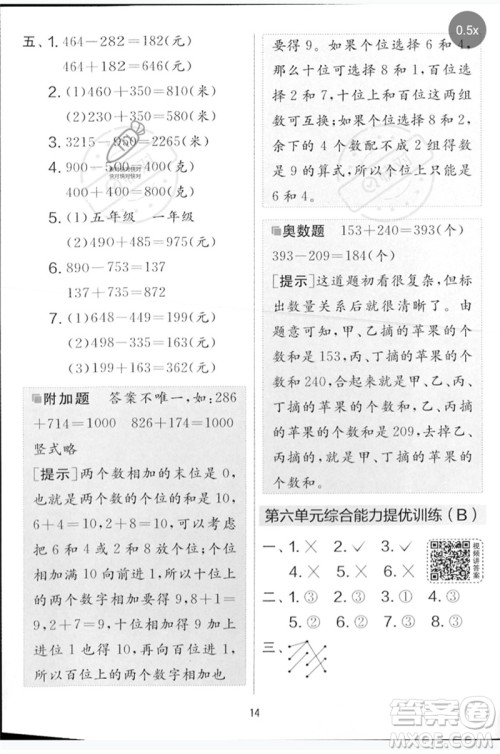 0.5x
五、1. 464－282＝182(元)
464＋182＝646(元)
2. (1)460＋350＝810(米)
(2)230＋350＝580(米)
3. 3215－950＝2265(米)
4. 900－500＝400(克)
400＋400＝800(克)
5. (1)五年级 一年级
(2)490＋495＝985(元)
6. 890－753＝137
137＋753＝890
7. (1)648－449＝199(元)
(2)338－175＝163(元)
(3)199＋163＝362(元)
附加题 答案不唯一,如:286
＋714＝1000 826＋174＝1000
竖式略
[提示]两个数相加的末位是0,
也就是个位上的两个数字相加
的和是10,可以选择6和4,8
和2,9和1这三组。可以考虑
把这三组数先作为个位上相加
满10向前进1,那么十位上的
两个数字相加要得到9,9＋1
＝10,这样就能保证十位上的
数字为0,并且向前一位进1。
所以百位上的两个数字相加也
要得9。如果个位选择6和4,
那么十位可选择8和1,百位选
择2和7,十位上和百位上的两组
数可互换;如果个位选择8和2,
余下的4个数配不成2组得数
是9的算式,所以个位上只能是
6和4。
奥数题 153＋240＝393(个)
393－209＝184(个)
[提示]这道题初看很复杂,但理
出数量关系后,会迎刃而解。由
题意可知,甲、乙摘的苹果的个
数和是153,丙、丁摘的苹果的个
数和是240,可以求出甲、乙、丙、
丁摘的苹果的个数和是393,再
根据乙、丙摘的苹果的个数和是
209,去掉乙、丙摘的苹果的个
数,剩下的就是甲、丁摘的苹果
的个数和。
第六单元综合能力提优训练(B)
一、1. ✕ 2. ✓ 3. ✓
4. ✕ 5. ✕ 6. ✕
二、1. ③ 2. ① 3. ① 4. ③
5. ② 6. ② 7. ① 8. ③
三、
14
答案圈
MXQE.COM